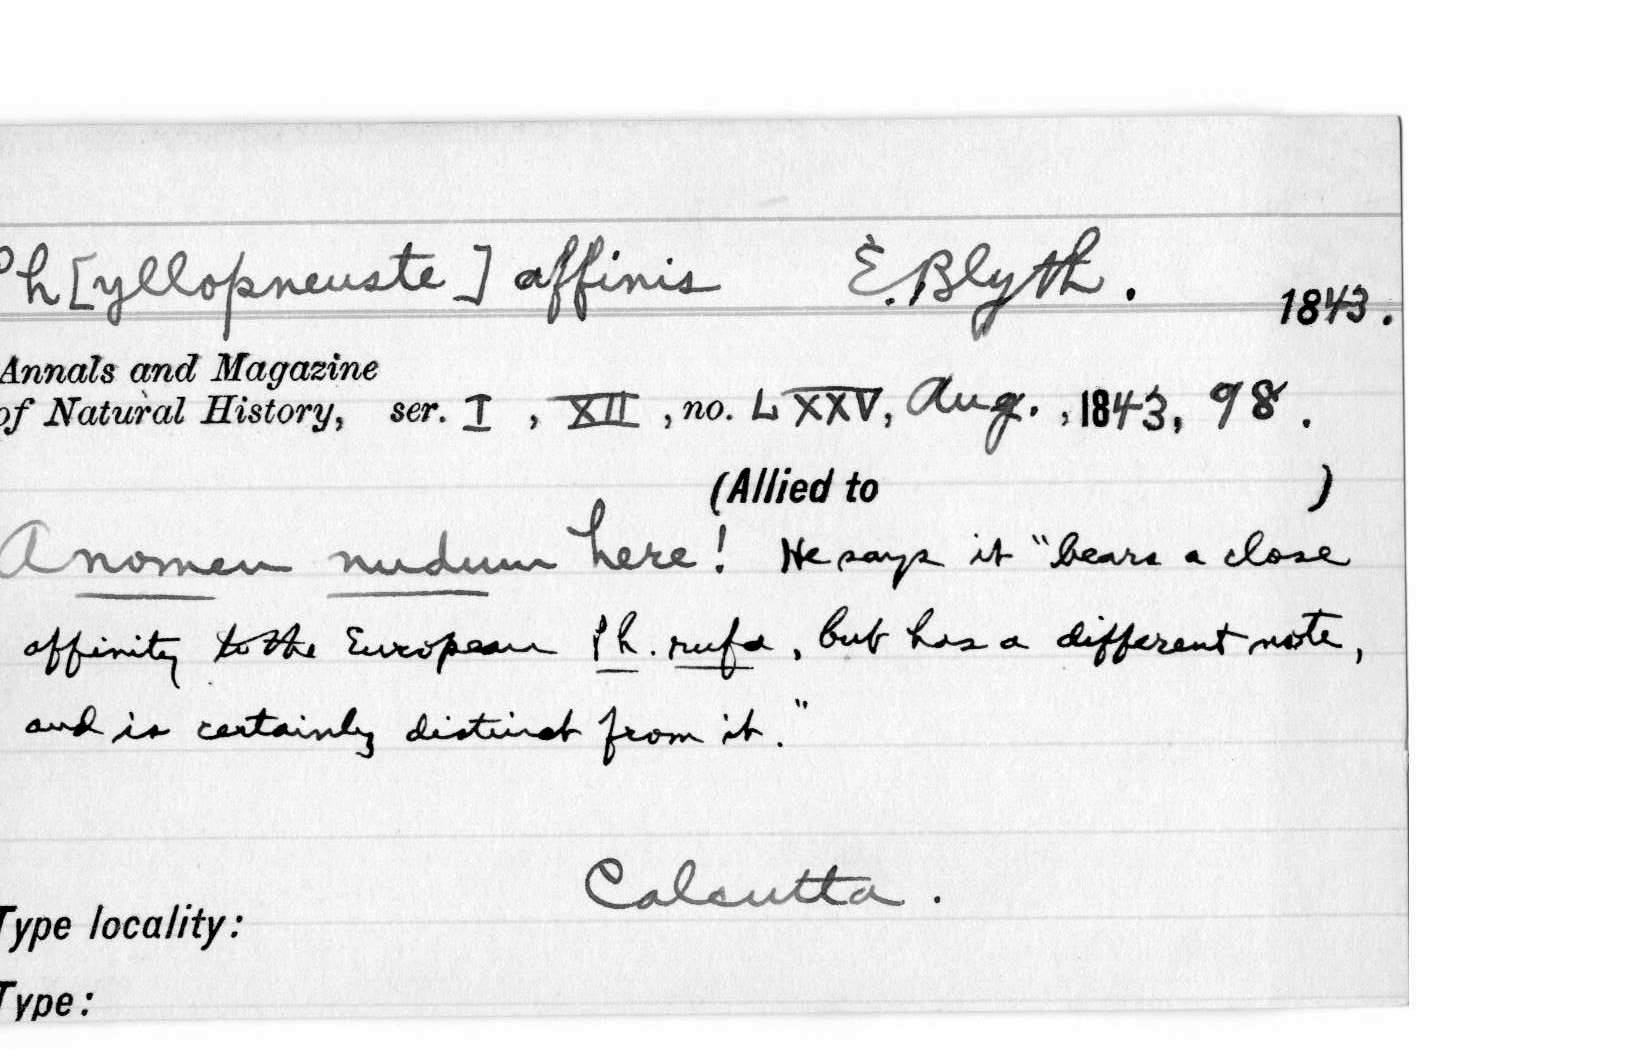 Ph[yllopneuste] affinis E. Blyth.
1843.
Annals and Magazine
of Natural History, ser. I, XII, no. LXXV, Aug., 1843, 98.
(Allied to )
A nomen nudum here! He says it "bears a close
affinity to the European Ph. rufa, but has a different note,
and is certainly distinct from it."
Calcutta.
Type locality:
Type: